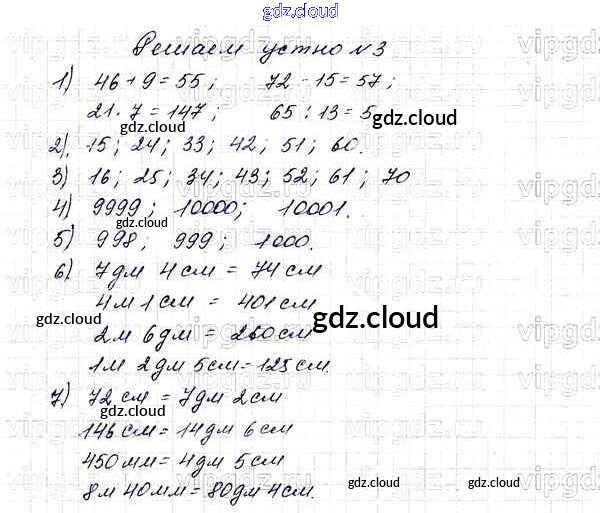 gdz.cloud
Решаем устно №3
1) 46 + 9 = 55; 72 - 15 = 57;
21 · 7 = 147; 65 : 13 = 5
gdz.cloud gdz.cloud
2). 15; 24; 33; 42; 51; 60.
3) 16; 25; 34; 43; 52; 61; 70
4) 9999; 10000; 10001.
gdz.cloud
5) 998; 999; 1000.
6). 7дм 4см = 74см
4м 1см = 401см
gdz.cloud gdz.cloud
2м 6дм = 260см
1м 2дм 5см = 125см.
7) 72см = 7дм 2см
gdz.cloud
146см = 14дм 6см
450мм = 4дм 5см
8м 40мм = 80дм 4см.
gdz.cloud gdz.cloud